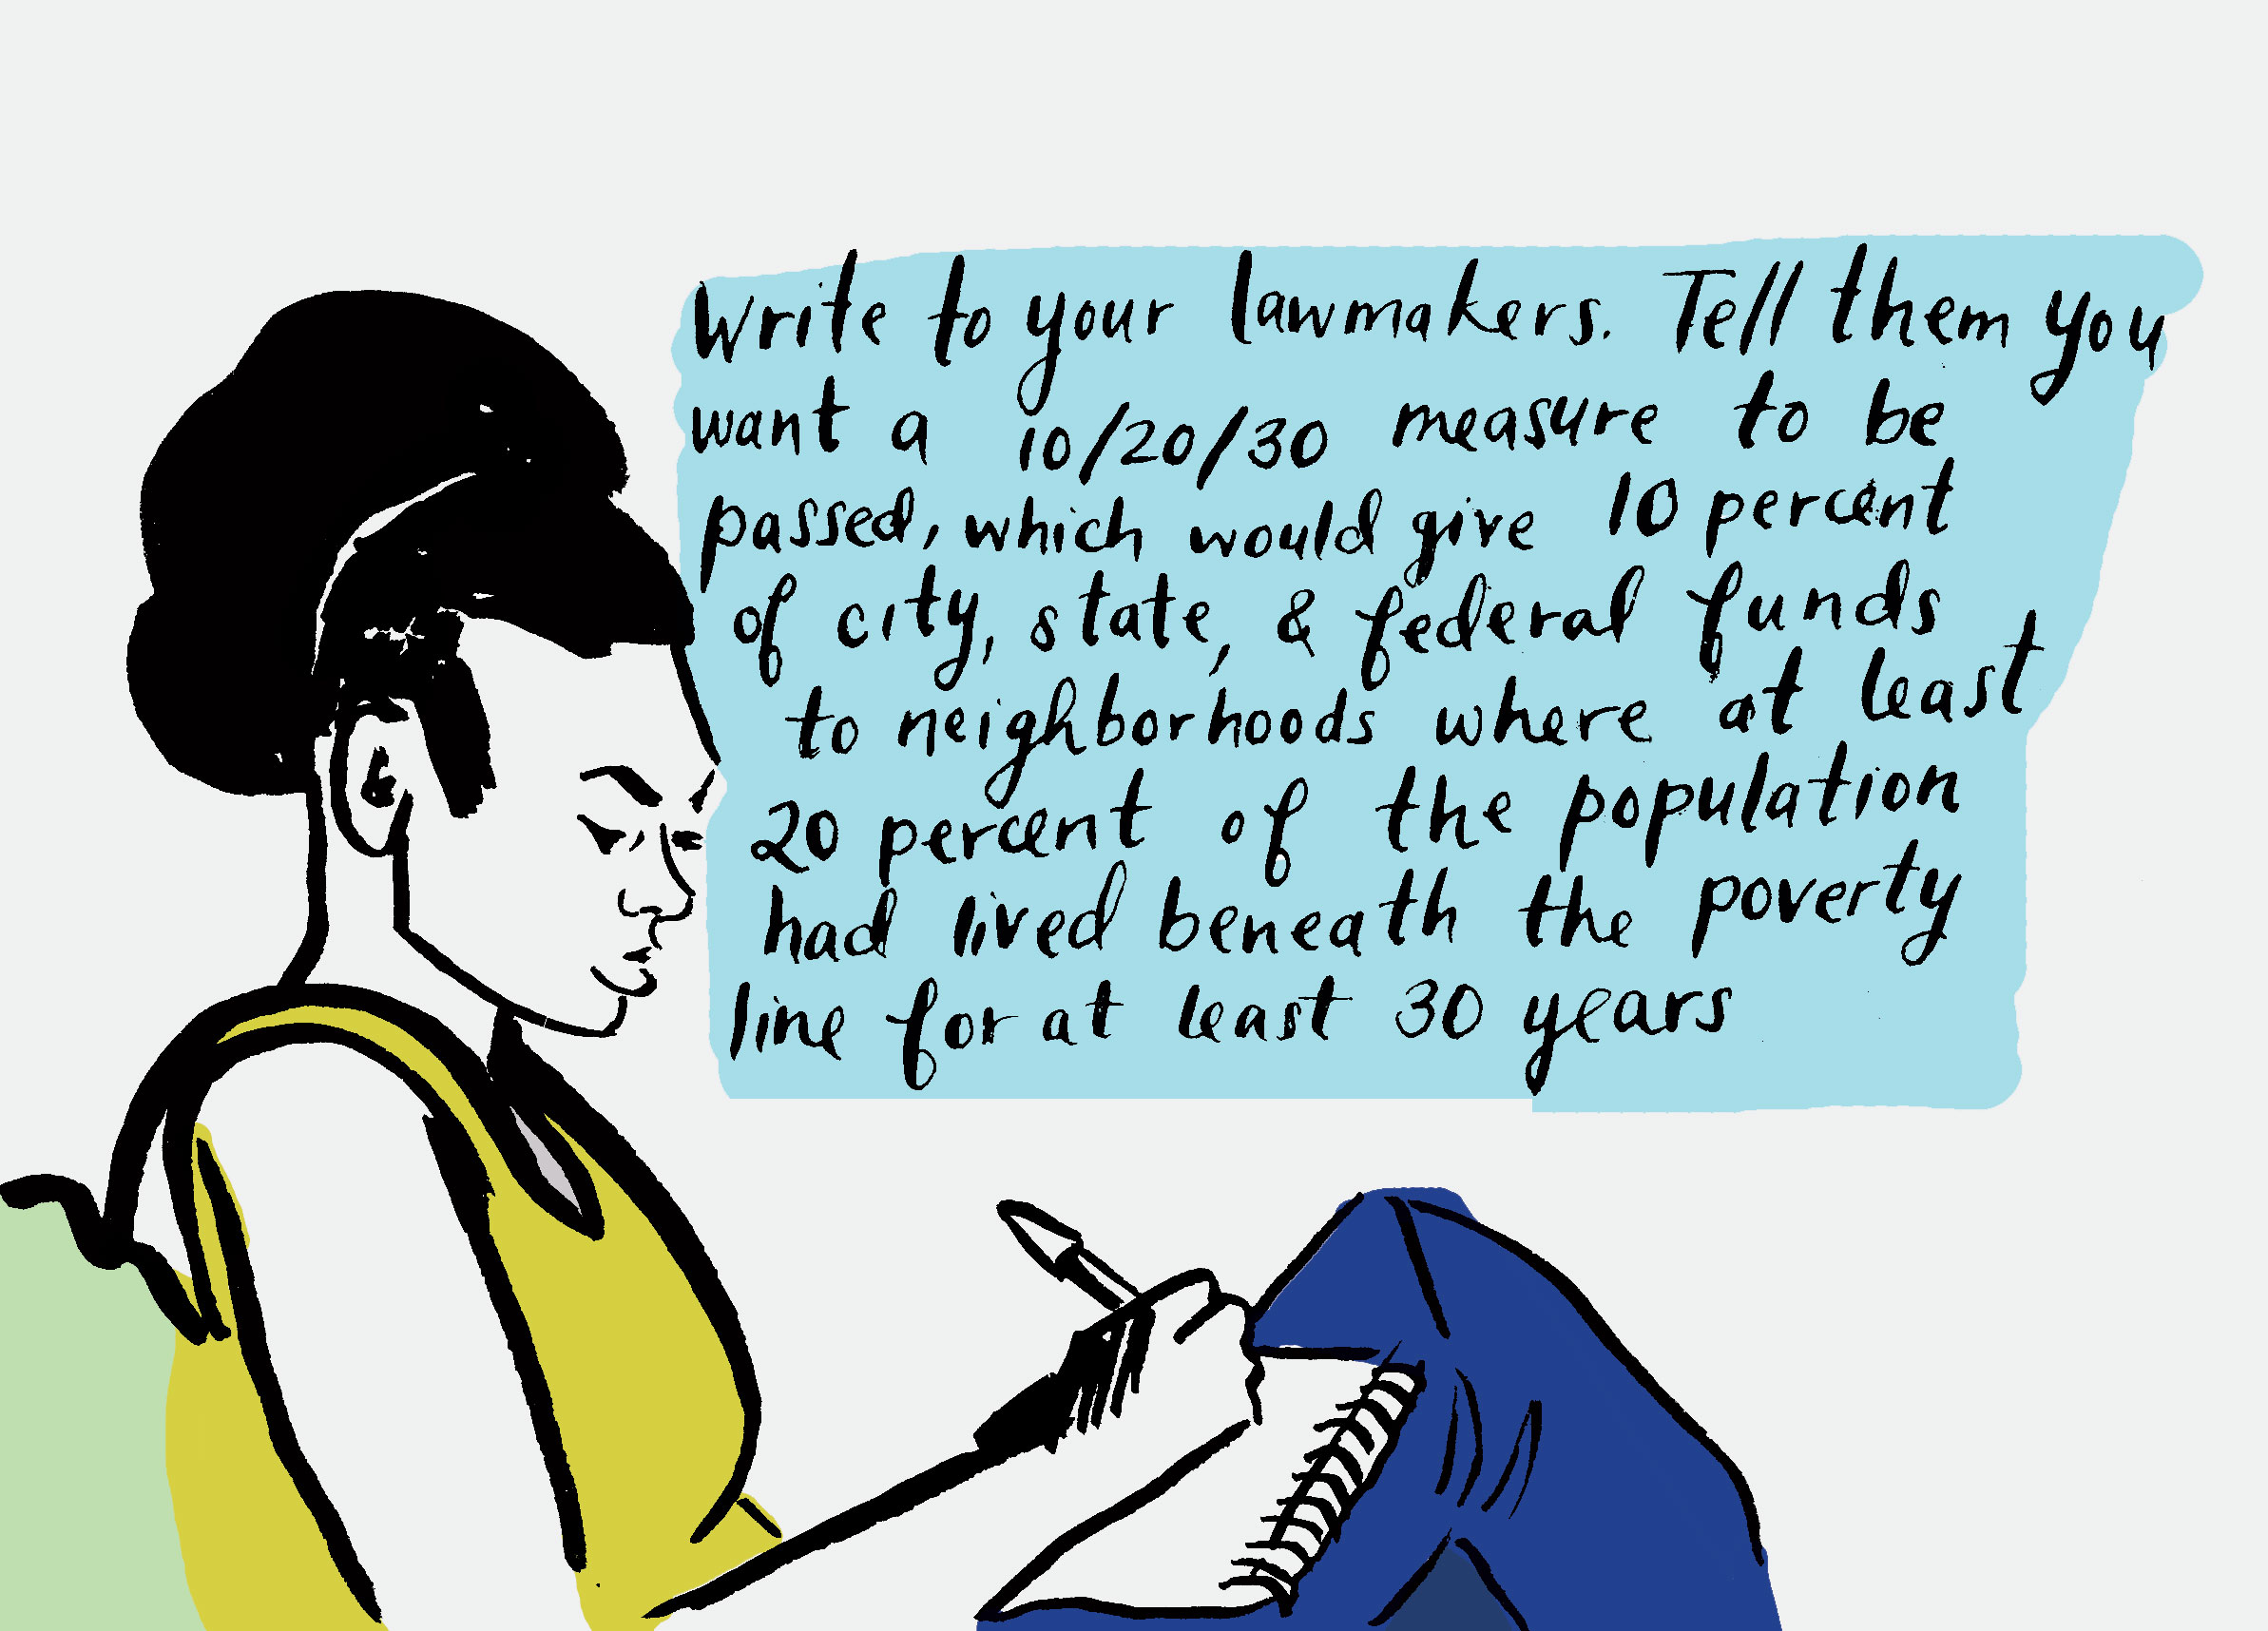 Write to your lawmakers. Tell them you
want a 10/20/30 measure to be
passed, which would give 10 percent
of city, state, & federal funds
to neighborhoods where at least
20 percent of the population
had lived beneath the poverty
line for at least 30 years